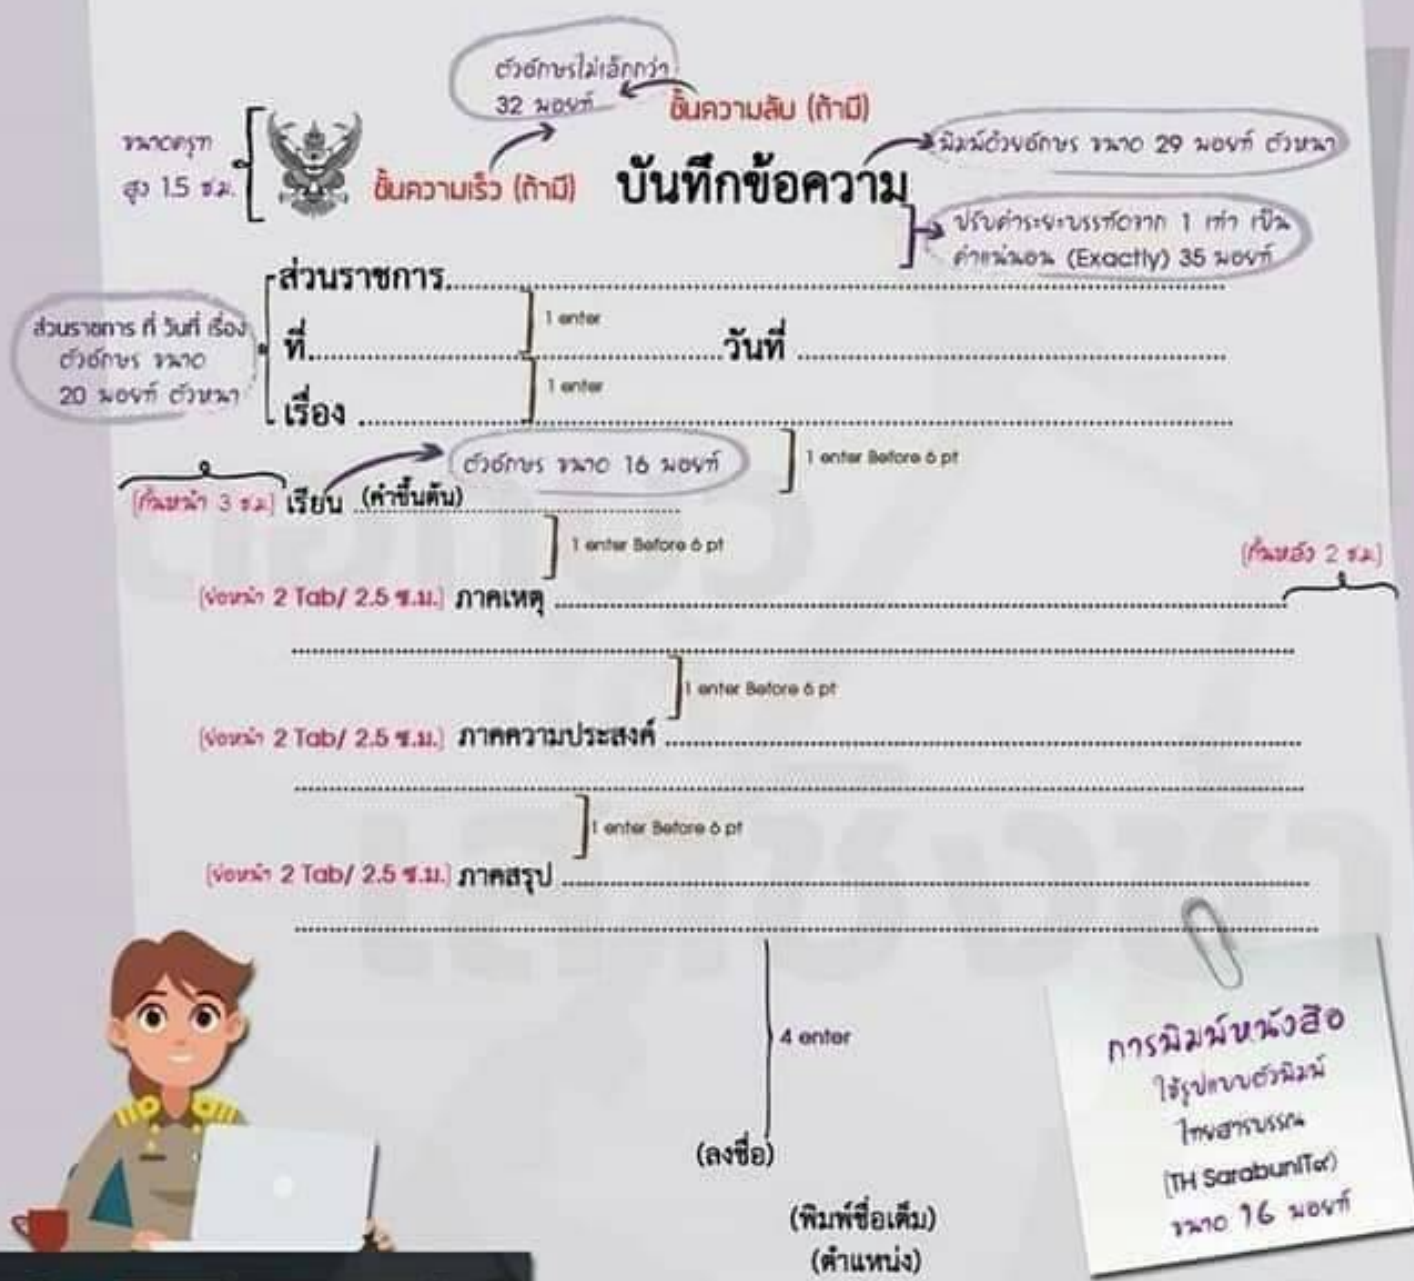 ตัวอักษรไม่เล็กกว่า
32 พอยท์
ชั้นความลับ (ถ้ามี)
ขนาดครุฑ
สูง 1.5 ซ.ม.
ชั้นความเร็ว (ถ้ามี)
บันทึกข้อความ
พิมพ์ด้วยอักษร ขนาด 29 พอยท์ ตัวหนา
ปรับค่าระยะบรรทัดจาก 1 เท่า เป็น
ค่าแน่นอน (Exactly) 35 พอยท์
ส่วนราชการ
ส่วนราชการ ที่ วันที่ เรื่อง
ตัวอักษร ขนาด
20 พอยท์ ตัวหนา
1 enter
ที่ วันที่
1 enter
เรื่อง
ตัวอักษร ขนาด 16 พอยท์
1 enter Before 6 pt
(กั้นหน้า 3 ซ.ม.) เรียน (คำขึ้นต้น)
1 enter Before 6 pt
(กั้นหลัง 2 ซ.ม.)
(ย่อหน้า 2 Tab/ 2.5 ซ.ม.) ภาคเหตุ
1 enter Before 6 pt
(ย่อหน้า 2 Tab/ 2.5 ซ.ม.) ภาคความประสงค์
1 enter Before 6 pt
(ย่อหน้า 2 Tab/ 2.5 ซ.ม.) ภาคสรุป
4 enter
(ลงชื่อ)
(พิมพ์ชื่อเต็ม)
(ตำแหน่ง)
การพิมพ์หนังสือ
ใช้รูปแบบตัวพิมพ์
ไทยสารบรรณ
(TH SarabunIT๙)
ขนาด 16 พอยท์